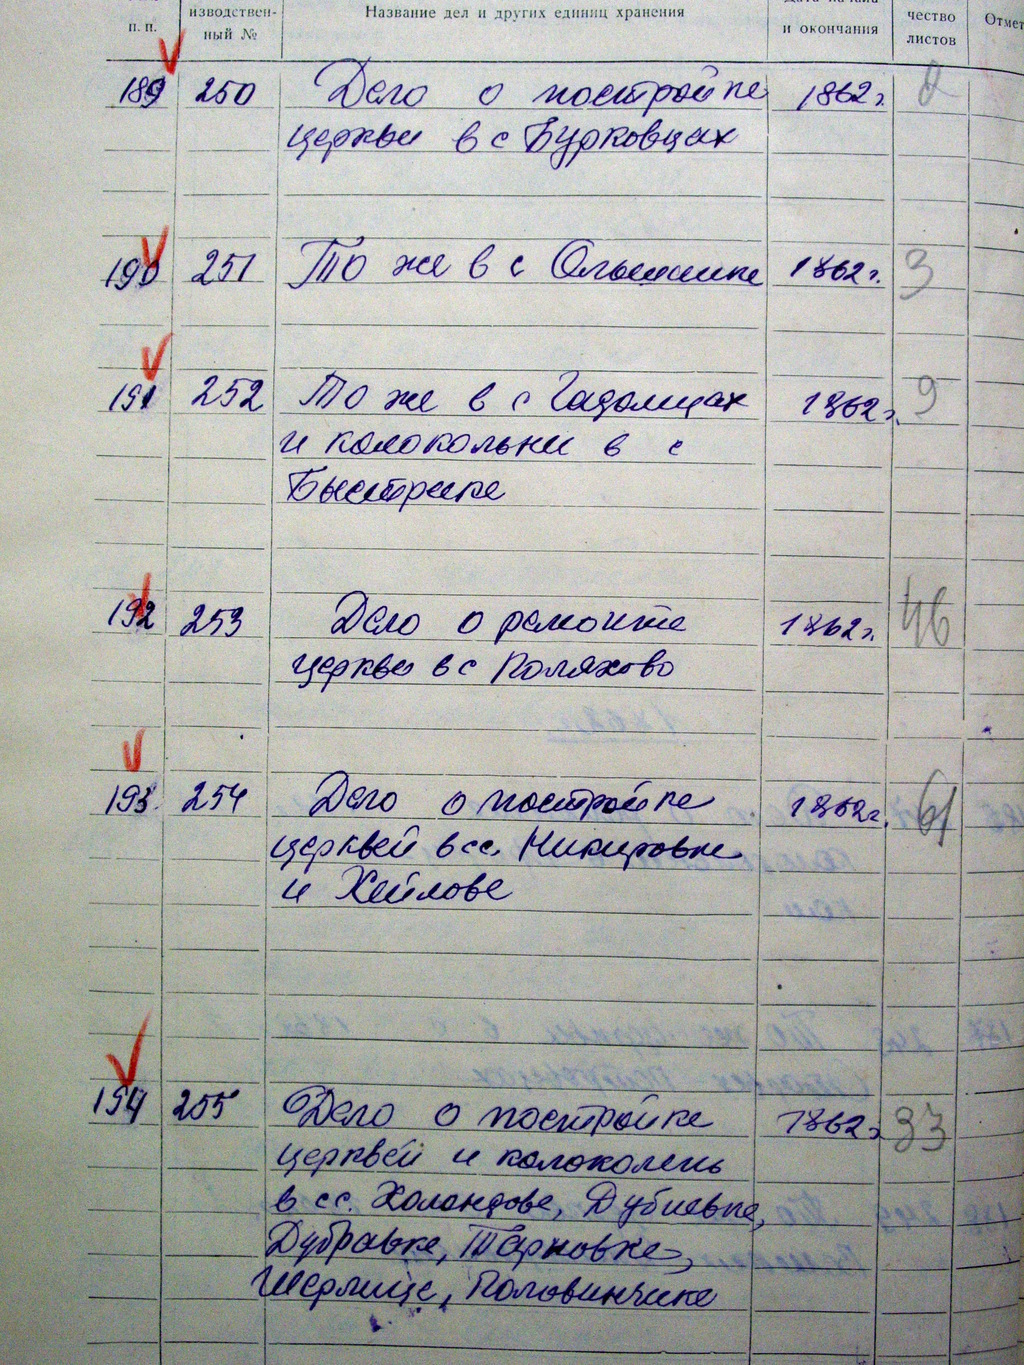 п. п.
изводствен-
ный №
Название дел и других единиц хранения
и окончания
чество
листов
Отмет
189 250 Дело о постройке 1862 г.
церкви в с Бурковцах
190 251 То же в с Ольшанке 1862 г. 3
191 252 То же в с Гадомцах 1862 г. 9
и колокольни в с
Быстрике
192 253 Дело о ремонте 1862 г. 46
церкви в с Поляхово
193 254 Дело о постройке 1862 г. 61
церквей в сс. Никировке
и Хейлове
194 255 Дело о постройке 1862 г 33
церквей и колоколень
в сс. Холандове, Дубиевке,
Дубравке, Тарновке,
Шерлице, Половинчике